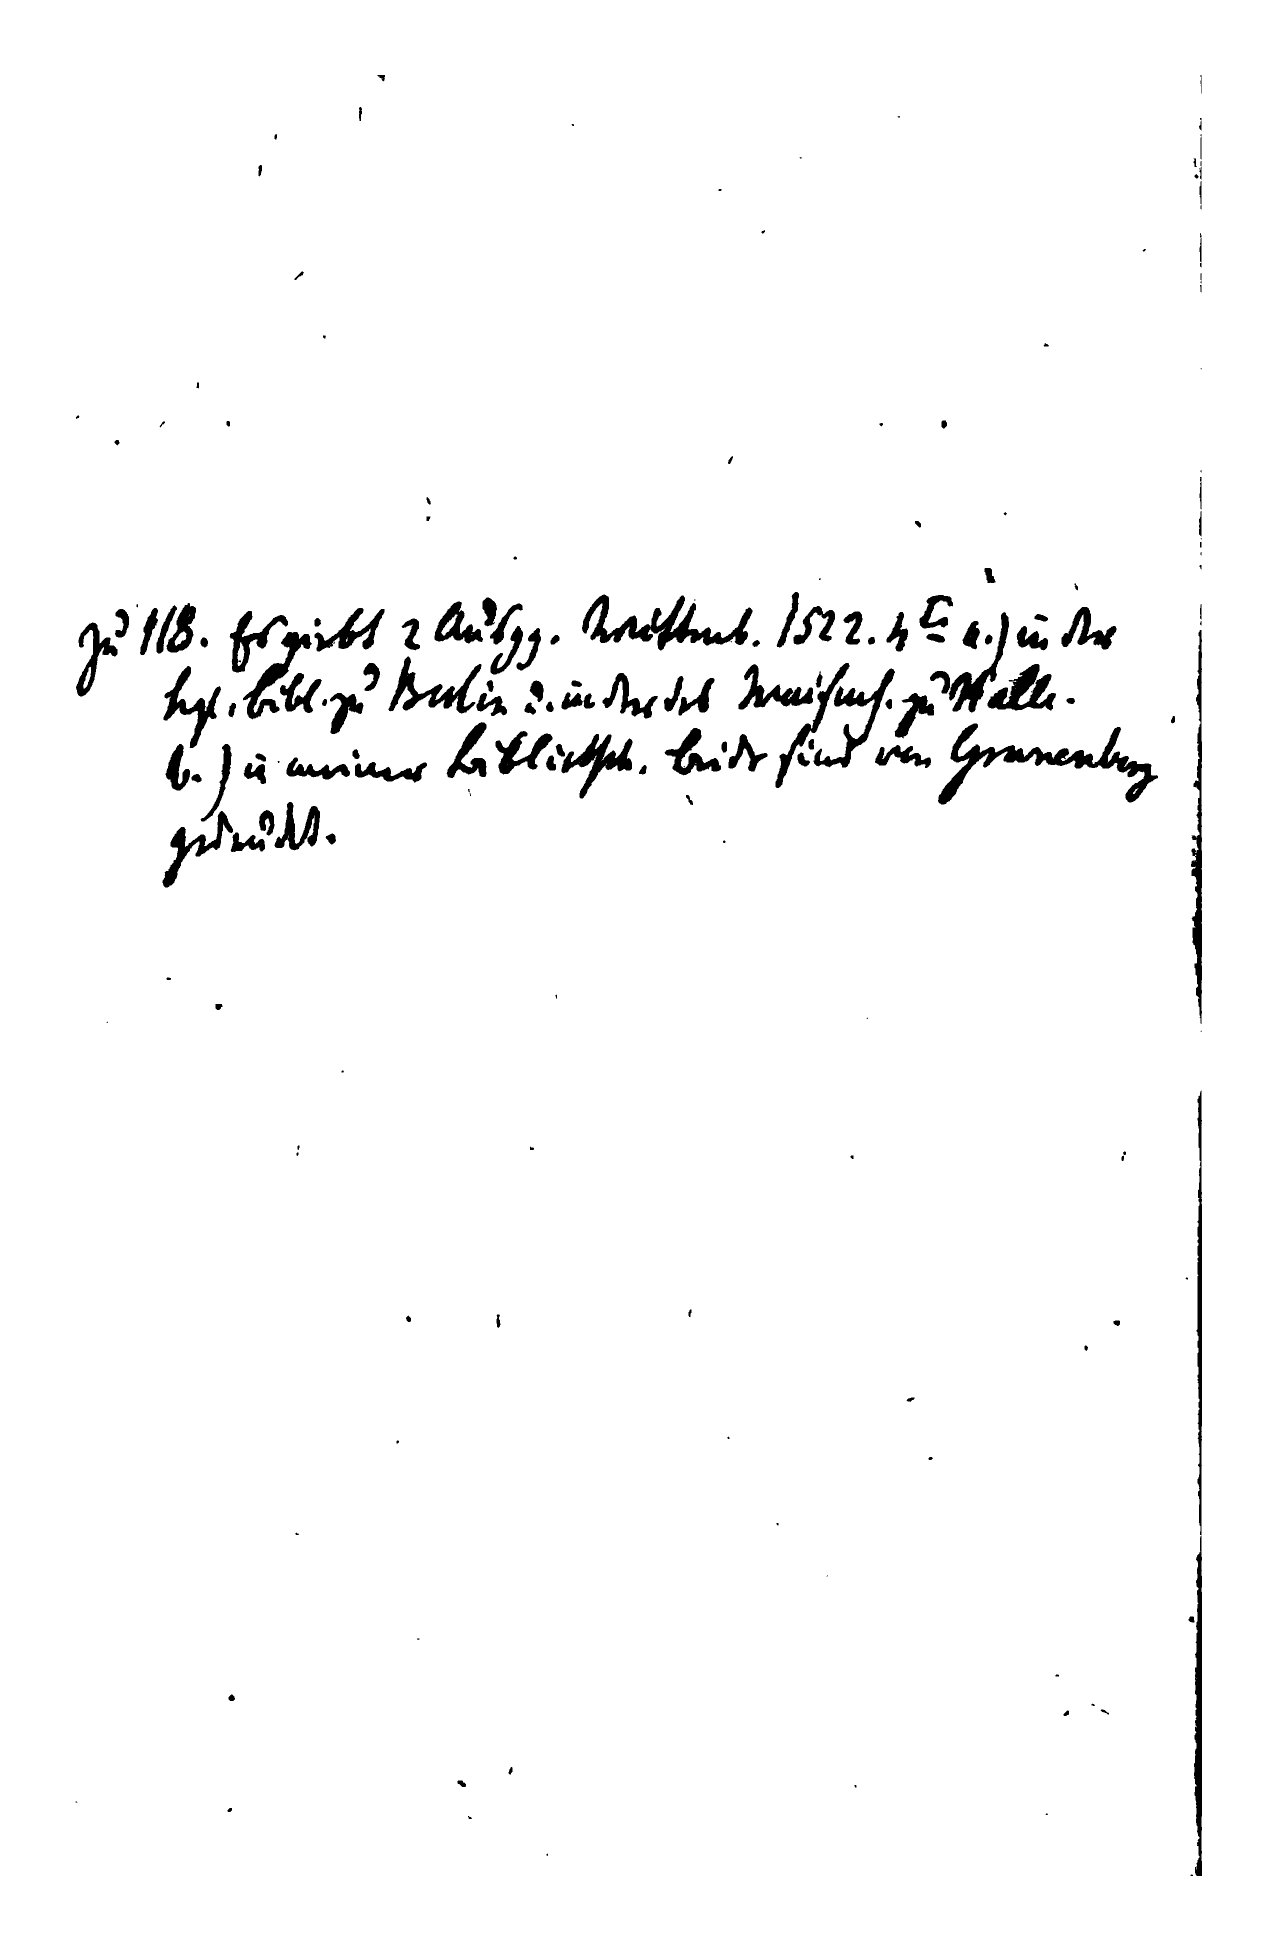 zu 118. Es giebt 2 Ausgg. Wittenb. 1522. 4° a.) in der
kgl. bibl. zu Berlin u. in der des Waisenh. zu Halle.
b.) in meiner bibliothek. beide sind von Grunenberg
gedruckt.